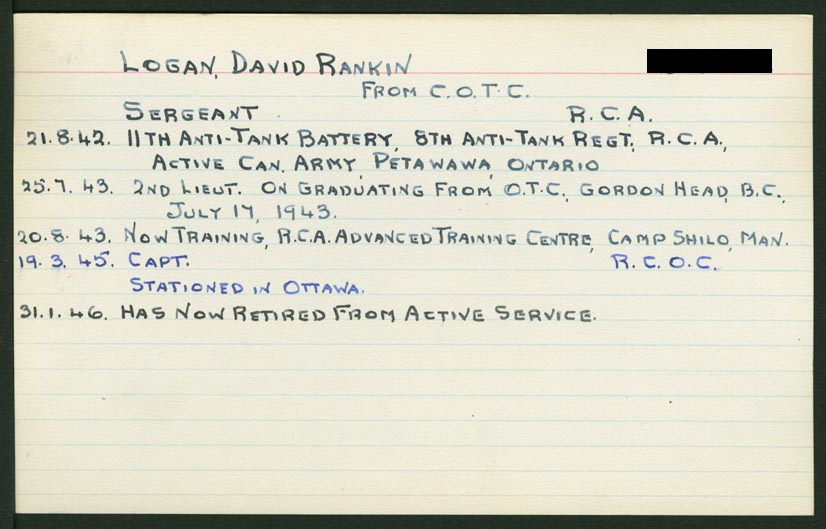 LOGAN, DAVID RANKIN
FROM C.O.T.C.
SERGEANT R.C.A.
21.8.42. 11TH ANTI-TANK BATTERY, 8TH ANTI-TANK REGT, R.C.A.,
ACTIVE CAN. ARMY, PETAWAWA, ONTARIO
25.7.43. 2ND LIEUT. ON GRADUATING FROM O.T.C., GORDON HEAD, B.C.,
JULY 17, 1943.
20.8.43. NOW TRAINING, R.C.A. ADVANCED TRAINING CENTRE, CAMP SHILO, MAN.
19.3.45. CAPT. R.C.O.C.
STATIONED IN OTTAWA.
31.1.46. HAS NOW RETIRED FROM ACTIVE SERVICE.